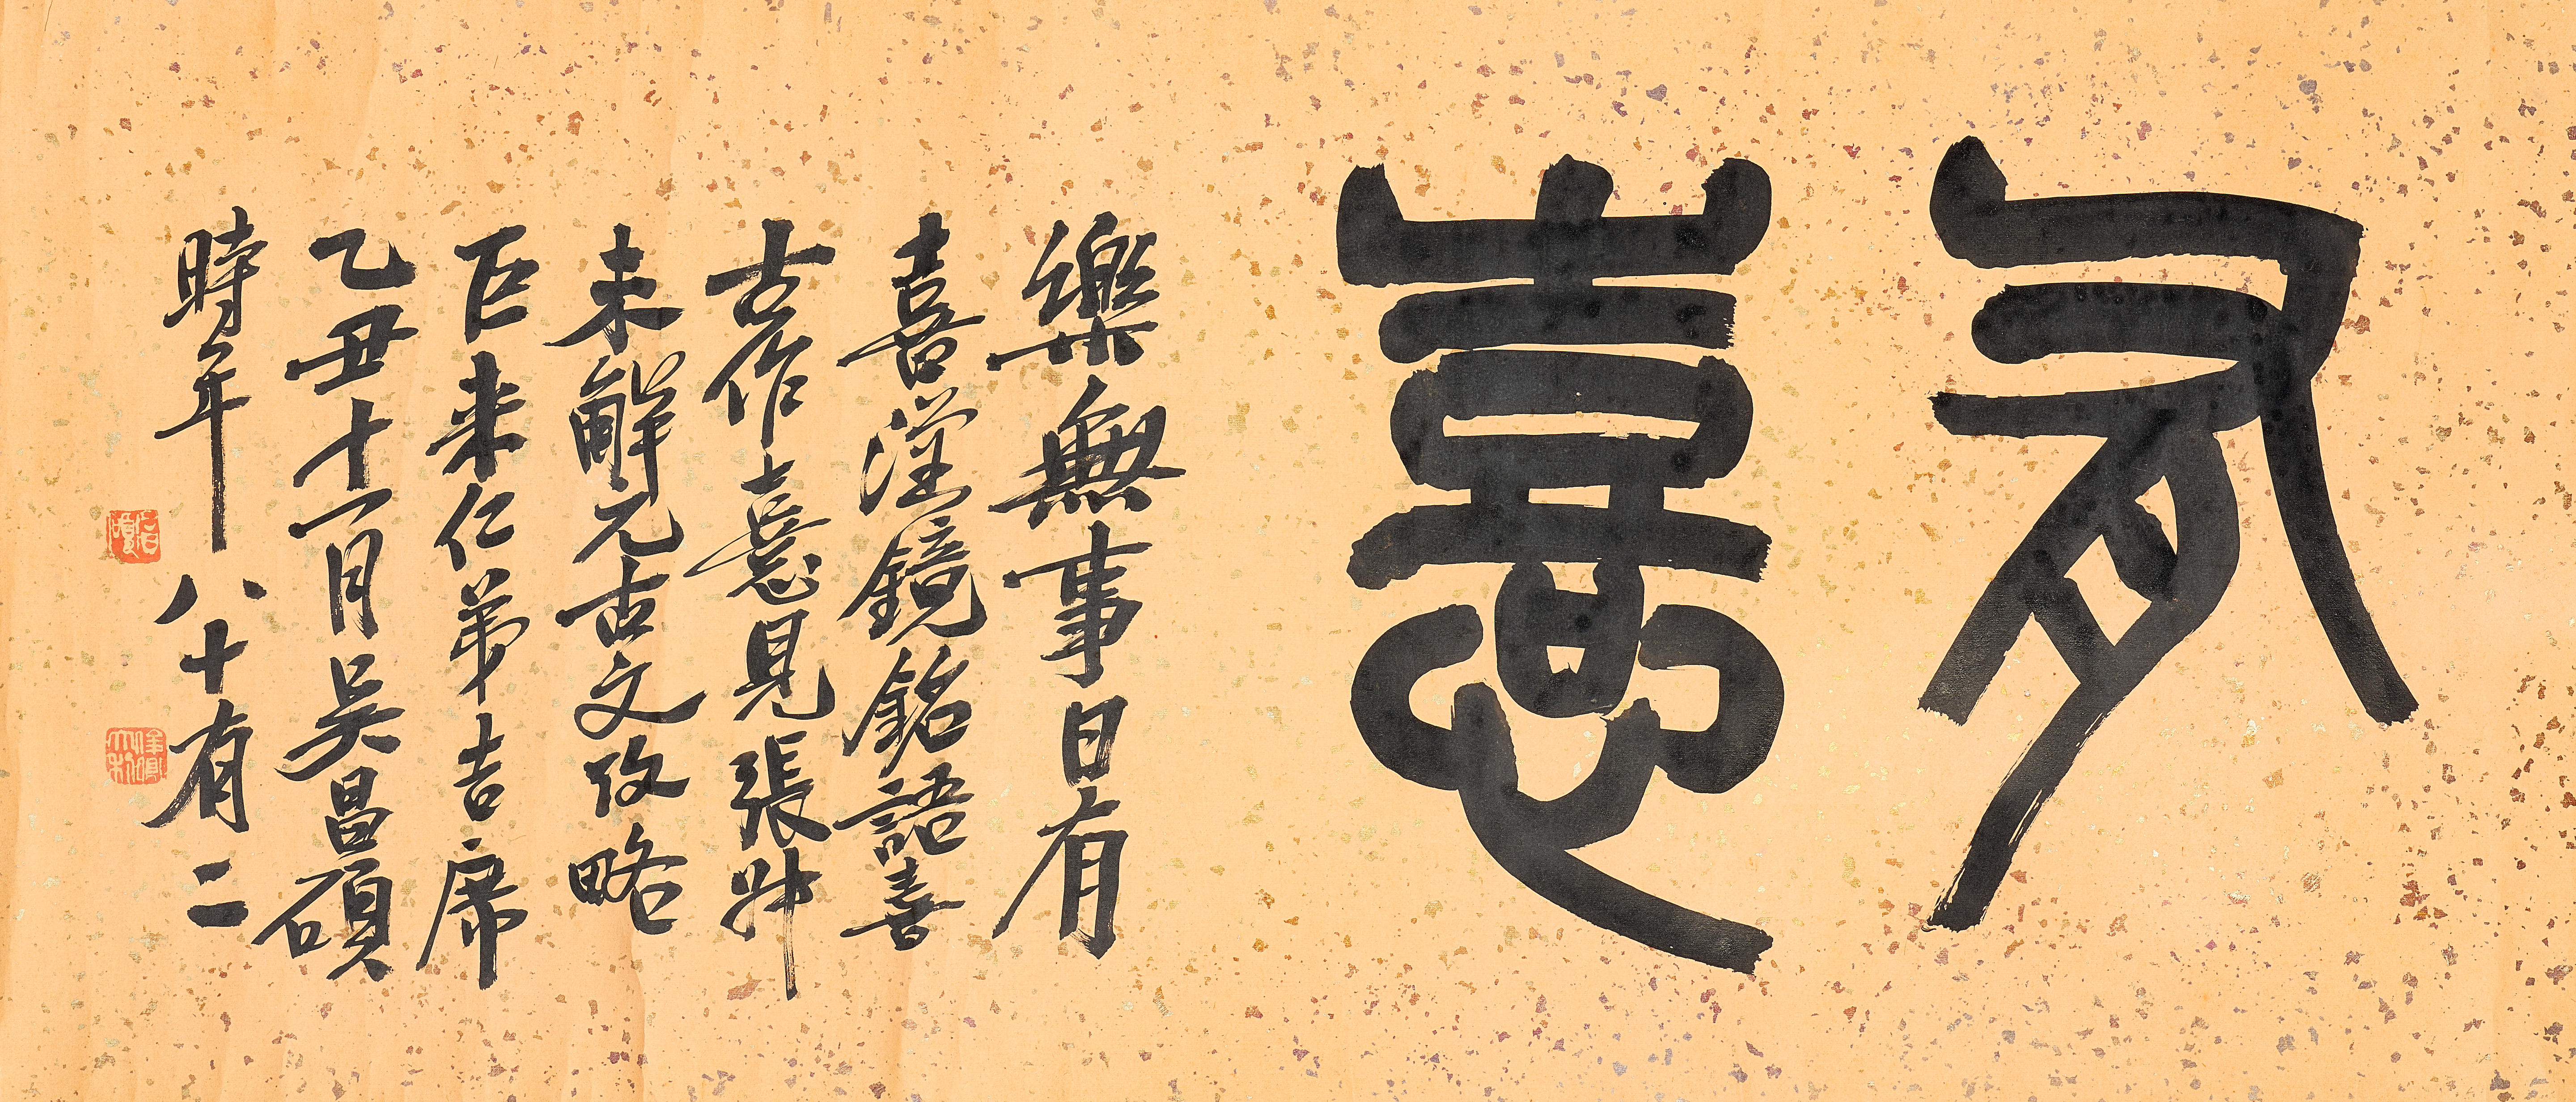 有憙
樂無事日有
喜漢鏡銘語喜
古作憙見張叔
未解元古文攷略
巨来仁弟吉席
乙丑十一月吳昌碩
時年八十有二